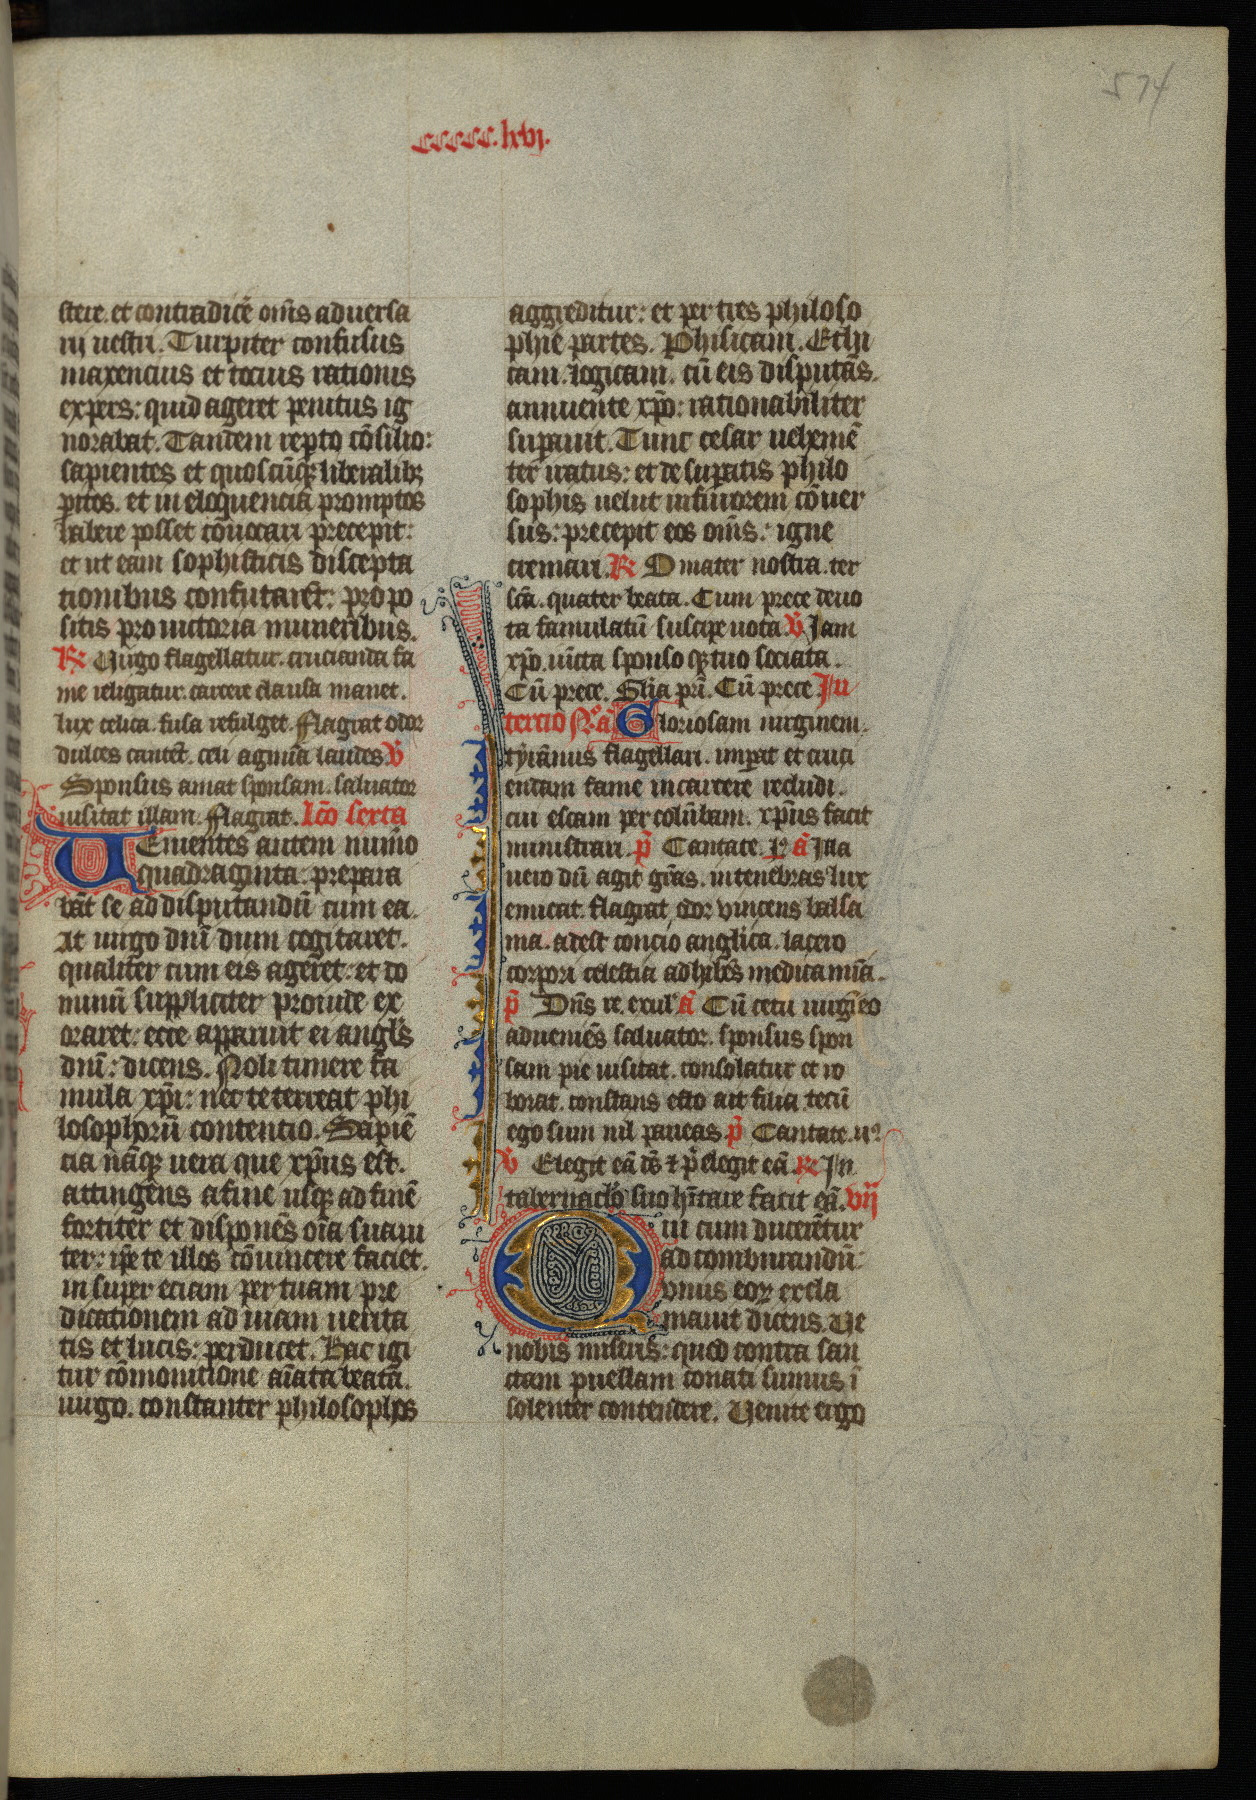 574
ccccc.lxvj.
stere. et contradicē oīns aduersa
rij uestri. Turpiter confusus
maxencius et tocius rationis
expers: quid ageret penitus ig
norabat. Tandem rep̄to cōsilio:
sapientes et quoscūq̨ liberalibꝫ
p̄itos. et in eloquencia promptos
habere posset cōuocari precepit:
et ut eam sophisticis discepta
tionibus confutaret: propo
sitis pro uictoria muneribus.
R̄ Uirgo flagellatur. crucianda fa
me religatur. carcere clausa manet.
lux celica. fusa refulget. Flagrat odor
dulces cantēt. celi agmīa laudes V̄
Sponsus amat sponsam. saluator
uisitat illam. Flagrat. lc̄o sexta
Uenientes autem numo
quadraginta: prepara
bāt se ad disputandū cum ea.
At uirgo dnī dum cogitaret.
qualiter cum eis ageret: et do
minū suppliciter proinde ex
oraret: ecce apparuit ei angl̄s
dnī: dicens. Noli timere fa
mula xp̄i: nec te terreat phi
losophorū contentio. Sapiē
cia nāq̨ uera que xp̄us est.
attingēns a fine usq̨ ad finē
fortiter et disponēs oīa suaui
ter: ip̄e te illos cōuincere faciet.
in super eciam per tuam pre
dicationem ad uiam uerita
tis et lucis: perducet. Hac igi
tur cōmonitione aīata beata
uirgo. constanter philosophos
aggreditur: et per tres philoso
phie partes. Phisicam. Ethi
cam. logicam. cū eis disputās.
annuente xp̄o: rationabiliter
sup̄auit. Tunc cesar uehemē
ter iratus: et de sup̄atis philo
sophis uelut in furorem cōuer
sus: precepit eos oīns: igne
cremari. R̄ O mater nostra. ter
sc̄a. quater beata. Cum prece deuo
ta famulatū suscipe uota V̄ Iam
xp̄o. uīcta sponso q̨ tuo sociata.
Cū prece. Gl̄ia pr̄i. Cū prece In
tercio No. a Gloriosam uirginem.
tyrānus flagellari. imp̄at et cruci
endam fame in carcere recludi.
cui escam per colūbam. xp̄us facit
ministrari. p̄ Cantate. a Illa
uero dū agit gr̄as. in tenebras lux
emicat. flagrat odor vincens balsa
ma. adest concio anglica. lacero
corpori celestia adhibēs medicamīa.
p̄ Dn̄s re. exul a Cū cetu uirgīeo
adueniēs saluator. sponsus spon
sam pie uisitat. consolatur et ro
borat. constans esto ait filia. tecū
ego sum nil paueas p̄ Cantate. ii
V̄ Elegit eā ds̄ ⁊ p̄elegit eā. R̄ In
tabernac̄lo suo hītare facit eā. vij
Qui cum ducerētur
ad comburandū:
vnus eoꝝ excla
mauit dicens. Ve
nobis miseris: quod contra san
ctam puellam conati sumus ī
solenter contendere. Uenite ergo